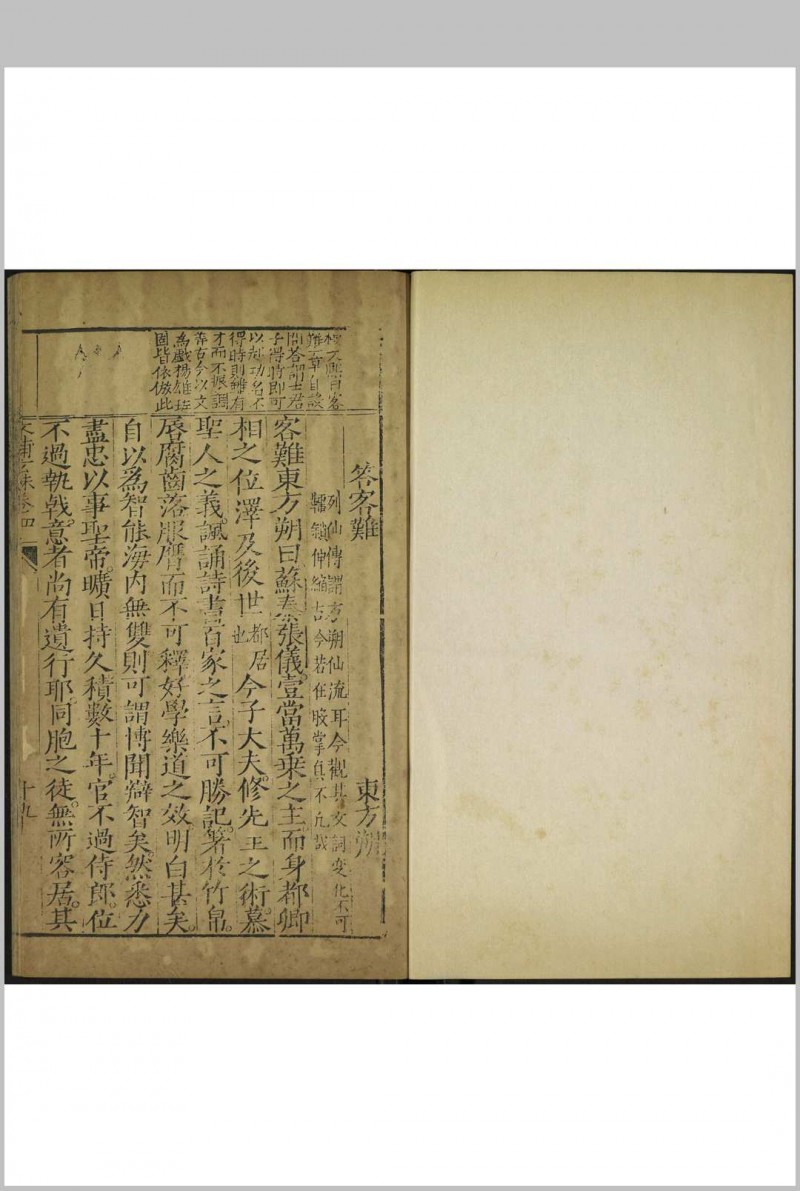 答客難 東方朔
列仙傳謂方朔仙流耳今觀其文詞變化不可
羈鎖伸縮古今若在股掌真不凡哉
客難東方朔曰蘇秦張儀壹當萬乘之主而身都卿
相之位澤及後世都居也今子大夫修先王之術慕
聖人之義諷誦詩書百家之言不可勝記著於竹帛
唇腐齒落服膺而不可釋好學樂道之效明白甚矣
自以為智能海內無雙則可謂博聞辯智矣然悉力
盡忠以事聖帝曠日持久積數十年官不過侍郎位
不過執戟意者尚有遺行耶同胞之徒無所容居其
卷四
十九
難

問答謂士君
子得時即可
以起功名不
得時則雖有
才而不振調
弄古今以文
為戲楊雄班
固皆依倣此